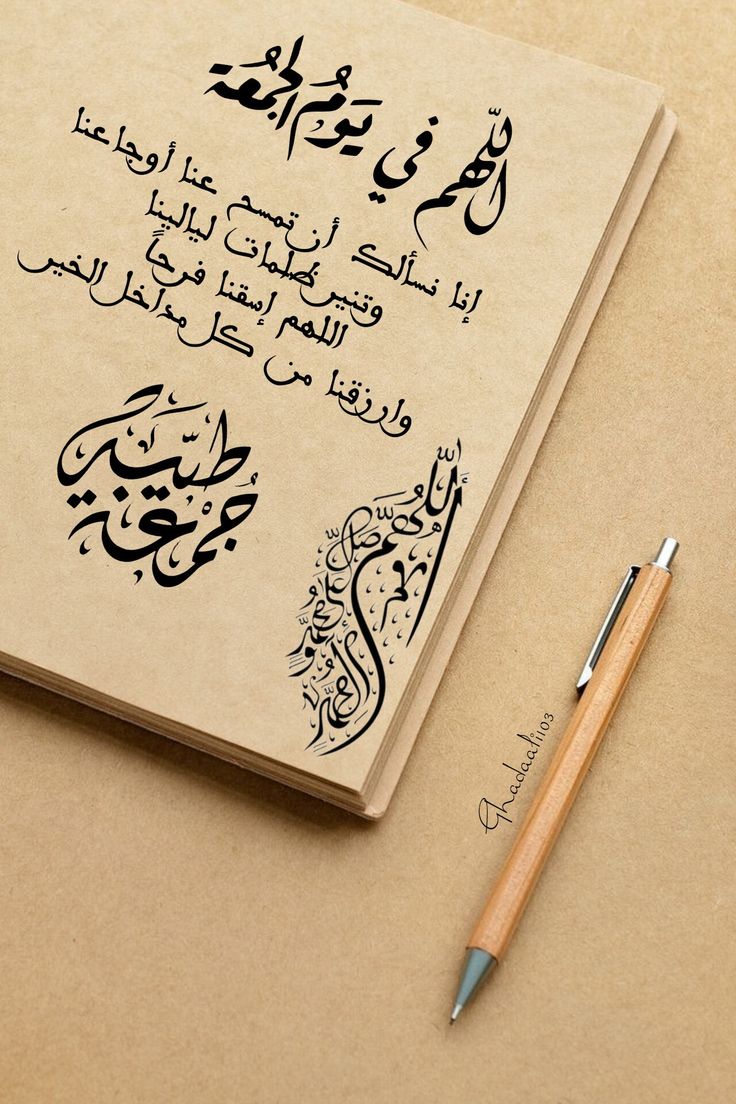 اللهم في يَومُ الجمُعة
إنا نسألك أن تمسح عنا أوجاعنا
وتنير ظلمات ليالينا
اللهم إسقنا فرحاً
وارزقنا من كل مداخل الخير
جُمعة
طيّبة
اللَّهُمَّ صَلِّ
وسلم
على محمدٍ
وآل محمد
Ghadaali103